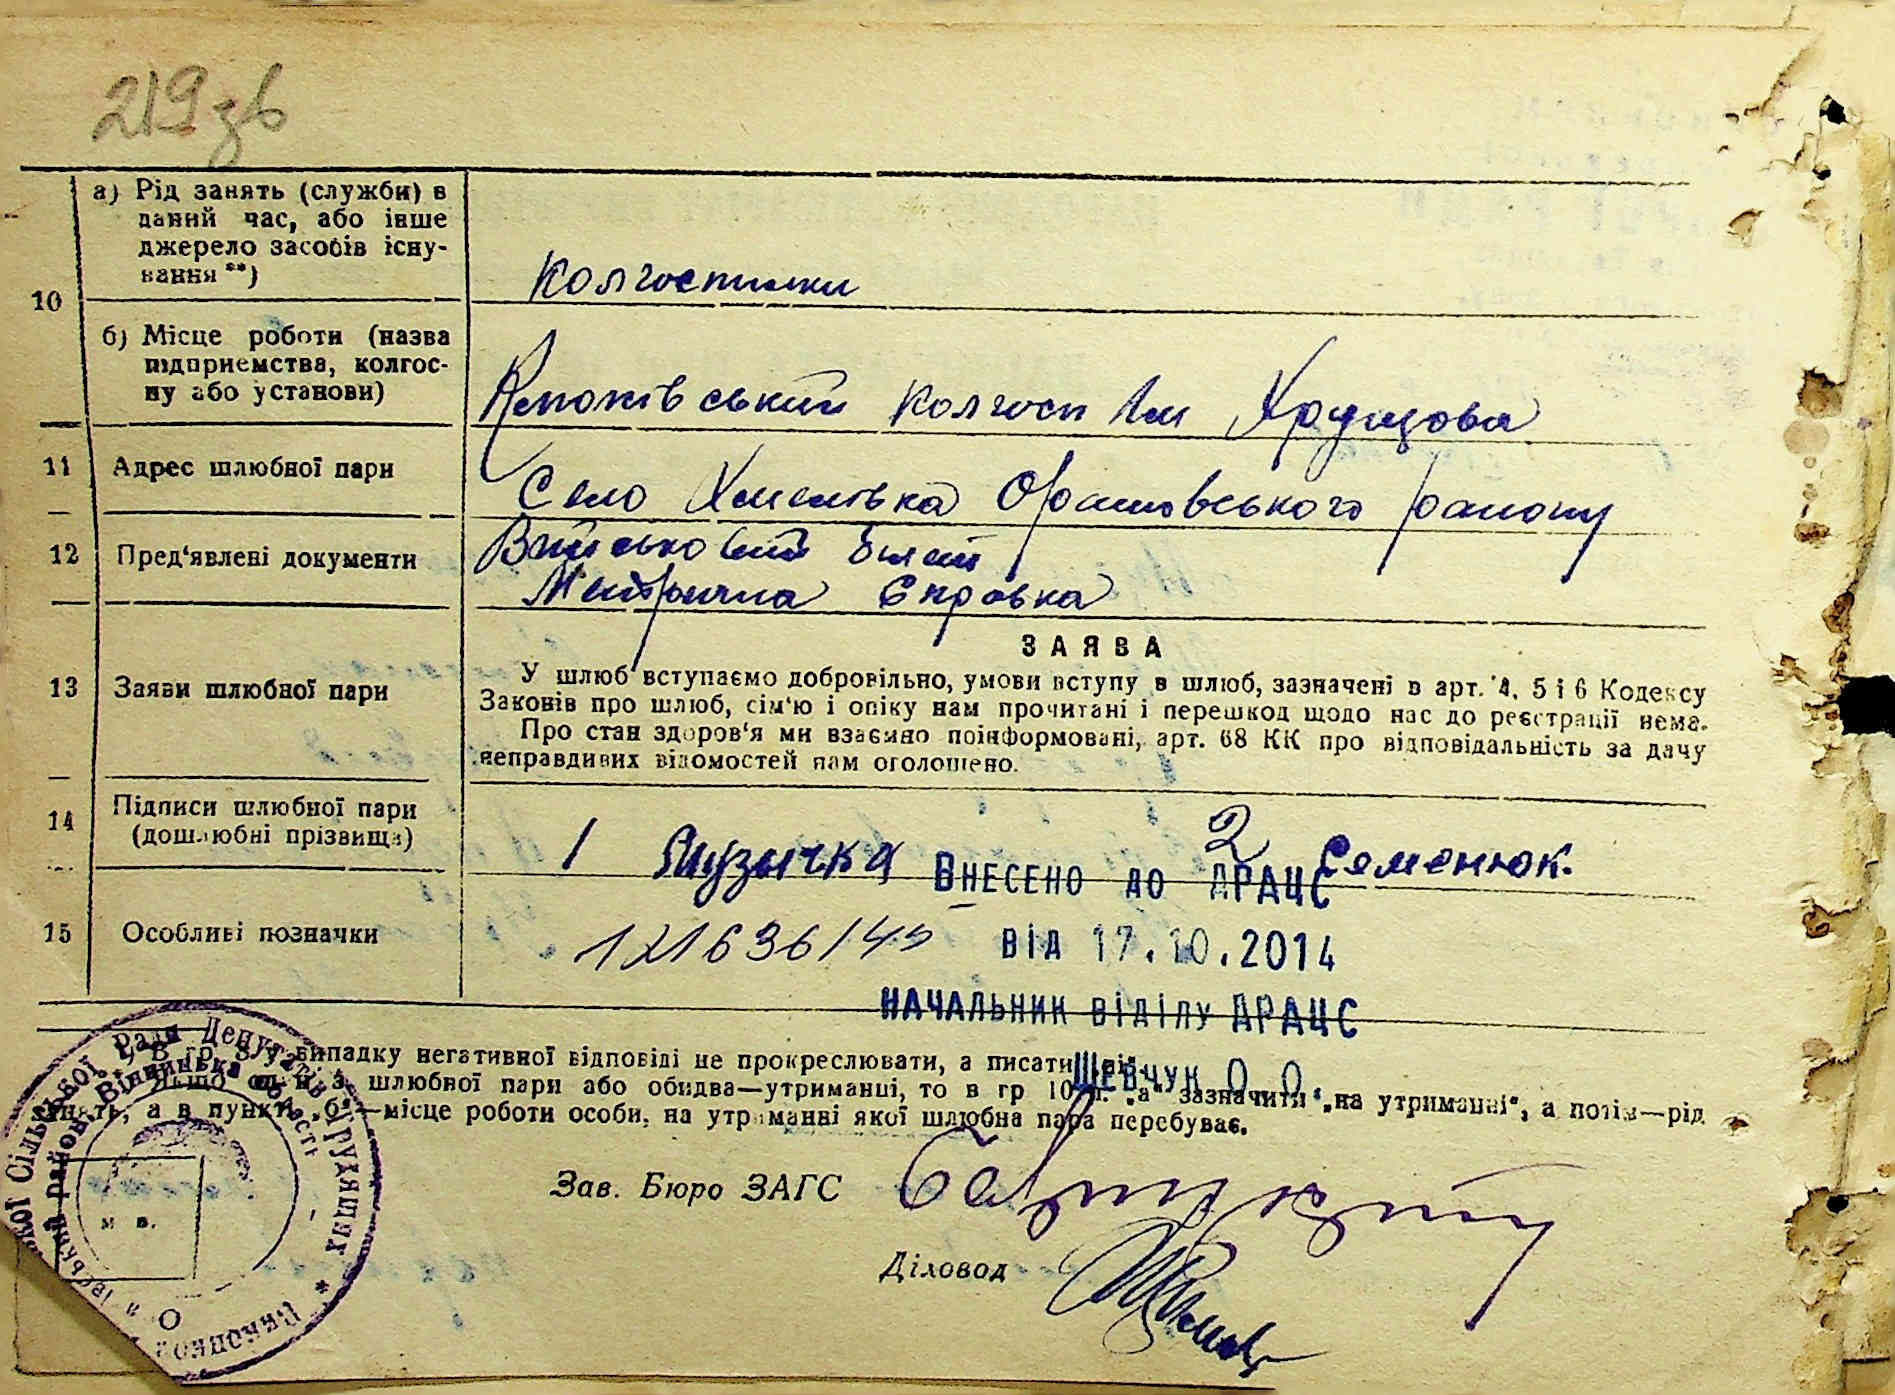 219зв
10
а) Рід занять (служби) в
даний час, або інше
джерело засобів існу-
вання **)
Колгоспники
б) Місце роботи (назва
підприємства, колгос-
пу або установи)
колгосп Ім Хрущова
11
Адрес шлюбної пари
Село Хмелівка району
12
Пред'явлені документи
Військовий білет
Метрична
ЗАЯВА
13
Заяви шлюбної пари
У шлюб вступаємо добровільно, умови вступу в шлюб, зазначені в арт. 4, 5 і 6 Кодексу
Законів про шлюб, сім'ю і опіку нам прочитані і перешкод щодо нас до реєстрації нема.
Про стан здоров'я ми взаємно поінформовані, арт. 68 КК про відповідальність за дачу
неправдивих відомостей нам оголошено.
14
Підписи шлюбної пари
(дошлюбні прізвища)
1 Музичка 2 Семенюк.
ВНЕСЕНО ДО ДРАЦС
15
Особливі позначки
121636/45
ВІД 17.10.2014
НАЧАЛЬНИК ВІДІЛУ ДРАЦС
ШЕВЧУК О.О.
В гр. 3 у випадку негативної відповіді не прокреслювати, а писати
Якщо один з шлюбної пари або обидва—утриманці, то в гр 10 п. „а" зазначити „на утриманні", а потім—рід
занять, а в пункті „б"—місце роботи особи, на утриманні якої шлюбна пара перебуває.
Зав. Бюро ЗАГС
Діловод
м п.
Сільської Ради Депутатів Трудящих *
район, Вінницька області